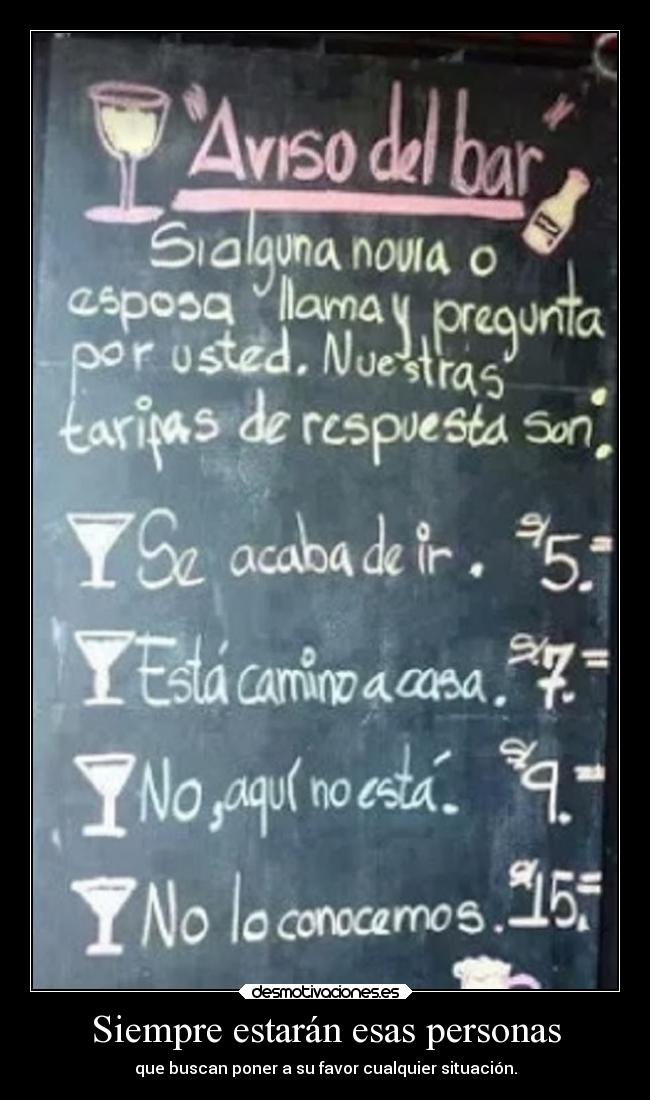 "Aviso del bar"
Si alguna novia o
esposa llama y pregunta
por usted. Nuestras
tarifas de respuesta son:
Se acaba de ir. S/5.=
Está camino a casa. S/7.=
No, aquí no está. S/9.=
No lo conocemos. S/15.=
desmotivaciones.es
Siempre estarán esas personas
que buscan poner a su favor cualquier situación.